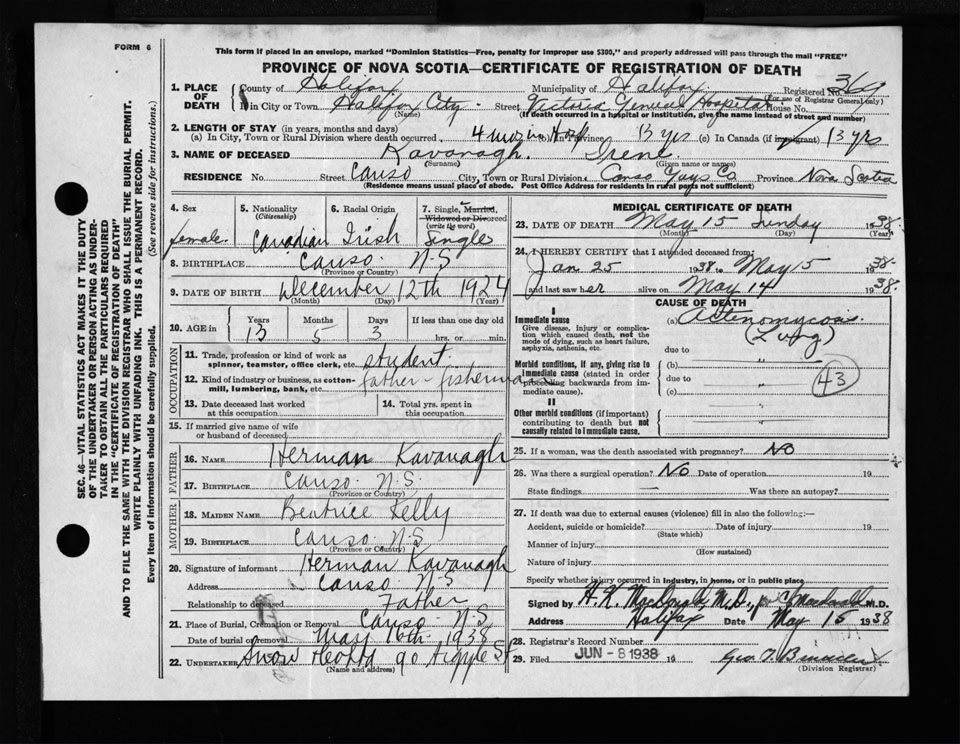 FORM 6
This form if placed in an envelope, marked "Dominion Statistics—Free, penalty for improper use $300," and properly addressed will pass through the mail "FREE"
PROVINCE OF NOVA SCOTIA—CERTIFICATE OF REGISTRATION OF DEATH
SEC. 46—VITAL STATISTICS ACT MAKES IT THE DUTY
OF THE UNDERTAKER OR PERSON ACTING AS UNDER-
TAKER TO OBTAIN ALL THE PARTICULARS REQUIRED
IN THE "CERTIFICATE OF REGISTRATION OF DEATH"
AND TO FILE THE SAME WITH THE DIVISION REGISTRAR WHO SHALL ISSUE THE BURIAL PERMIT.
WRITE PLAINLY WITH UNFADING INK. THIS IS A PERMANENT RECORD.
Every item of information should be carefully supplied. (See reverse side for instructions.)
1. PLACE OF DEATH County of Halifax Municipality of Halifax Registered No. 369
(For use of Registrar General only)
In City or Town Halifax City Street Victoria General Hospital House No.
(Name) (If death occurred in a hospital or institution, give the name instead of street and number)
2. LENGTH OF STAY (in years, months and days)
(a) In City, Town or Rural Division where death occurred 4 mos in Hosp In Province 13 yrs (c) In Canada (if immigrant) 13 yrs
3. NAME OF DECEASED Kavanagh. Irene
(Surname) (Given name or names)
RESIDENCE No. Street Canso City, Town or Rural Division Canso Guys Co Province Nova Scotia
(Residence means usual place of abode. Post Office Address for residents in rural parts not sufficient)
4. Sex female
5. Nationality (Citizenship) Canadian
6. Racial Origin Irish
7. Single, Married, Widowed or Divorced (write the word) Single
8. BIRTHPLACE Canso. N-S
(Province or Country)
9. DATE OF BIRTH December 12th 1924
(Month) (Day) (Year)
10. AGE in Years Months Days If less than one day old
13 5 3 hrs. or min.
OCCUPATION
11. Trade, profession or kind of work as spinner, teamster, office clerk, etc. student
12. Kind of industry or business, as cotton-mill, lumbering, bank, etc. father - fisherman
13. Date deceased last worked at this occupation
14. Total yrs. spent in this occupation
15. If married give name of wife or husband of deceased
FATHER
16. NAME Herman Kavanagh
17. BIRTHPLACE Canso. N.S.
(Province or Country)
MOTHER
18. MAIDEN NAME Beatrice Kelly
19. BIRTHPLACE Canso N.S
(Province or Country)
20. Signature of informant Herman Kavanagh
Address Canso N-S
Relationship to deceased Father
21. Place of Burial, Cremation or Removal Canso N-S
Date of burial or removal May 16th 1938
22. UNDERTAKER Snow 90 Argyle St
(Name and address)
MEDICAL CERTIFICATE OF DEATH
23. DATE OF DEATH May 15 Sunday 1938.
(Month) (Day) (Year)
24. I HEREBY CERTIFY that I attended deceased from:
Jan 25 1938 to May 15 1938.
and last saw her alive on May 14 1938.
CAUSE OF DEATH
I
Immediate cause (a) Actinomycosis
Give disease, injury or complication which caused death, not the mode of dying, such as heart failure, asphyxia, asthenia, etc. (Lung)
due to
Morbid conditions, if any, giving rise to immediate cause (stated in order proceeding backwards from immediate cause). (b) due to (c)
43
II
Other morbid conditions (if important) contributing to death but not causally related to immediate cause.
25. If a woman, was the death associated with pregnancy? No
26. Was there a surgical operation? No Date of operation 19
State findings Was there an autopsy?
27. If death was due to external causes (violence) fill in also the following:—
Accident, suicide or homicide? Date of injury 19
(State which)
Manner of injury
(How sustained)
Nature of injury
Specify whether injury occurred in industry, in home, or in public place
Signed by H. K. MacDonald, M.D., M.D.
Address Halifax Date May 15 1938
28. Registrar's Record Number
29. Filed JUN - 8 1938 19 Geo T.
(Division Registrar)